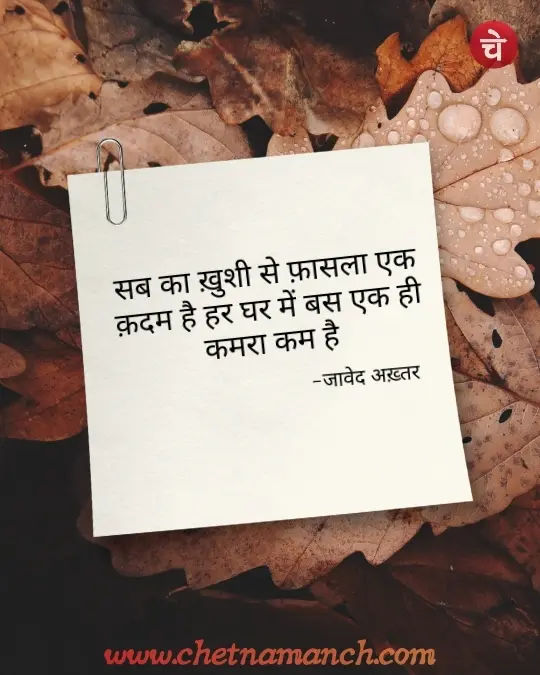 चे
सब का ख़ुशी से फ़ासला एक
क़दम है हर घर में बस एक ही
कमरा कम है
-जावेद अख़्तर
www.chetnamanch.com